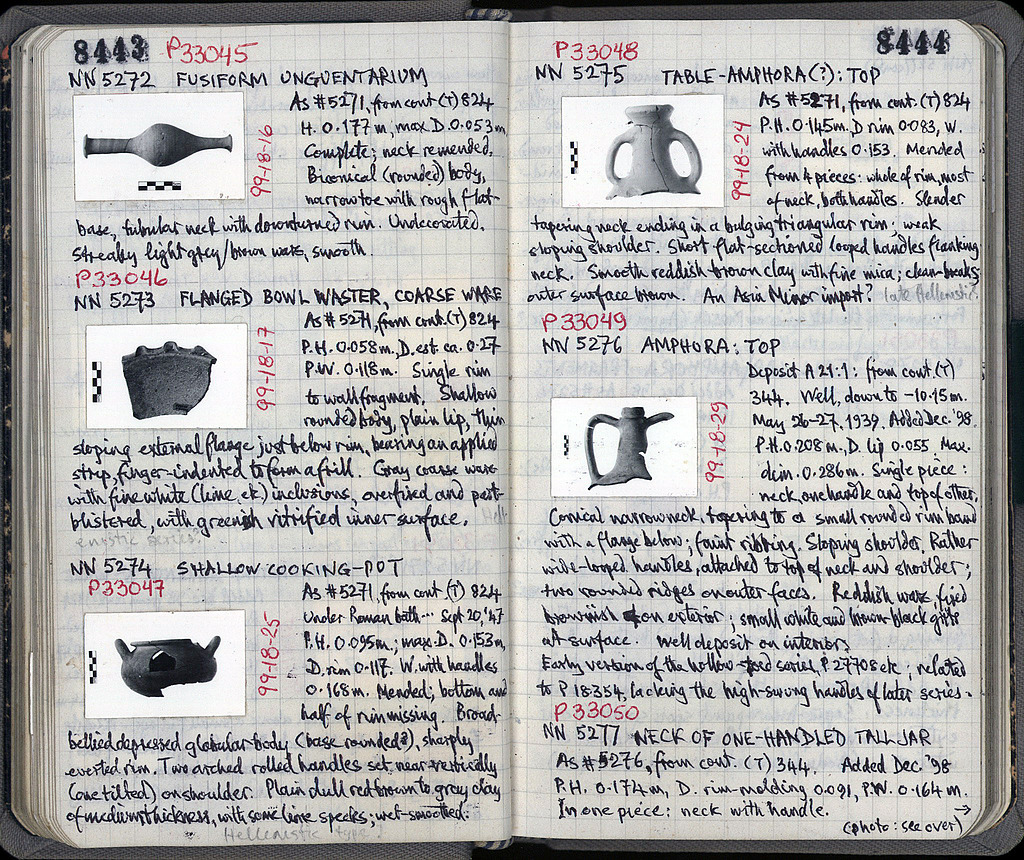 8443 P33045
NN 5272 FUSIFORM UNGUENTARIUM
As #5271, from cont. (T) 824
H. 0.177 m, max D. 0.053 m
Complete; neck remended.
Biconical (rounded) body,
narrow toe with rough flat
99-18-16
base, tubular neck with downturned rim. Undecorated.
Streaky light grey/brown ware, smooth.
P33046
NN 5273 FLANGED BOWL WASTER, COARSE WARE
As #5271, from cont. (T) 824
P.H. 0.058 m, D. est. ca. 0.27
P.W. 0.118 m. Single rim
to wall fragment. Shallow
rounded body, plain lip, thin
99-18-17
sloping external flange just below rim, bearing an applied
strip, finger-indented to form a frill. Gray coarse ware
with fine white (lime etc) inclusions, overfired and part-
blistered, with greenish vitrified inner surface. Hell-
enistic series.
NN 5274 SHALLOW COOKING-POT
P33047
As #5271, from cont. (T) 824
Under Roman bath... Sept 20, '47
P.H. 0.095 m; max D. 0.153 m,
D. rim 0.117. W. with handles
0.168 m. Mended; bottom and
half of rim missing. Broad-
99-18-25
bellied depressed globular body (base rounded?), sharply
everted rim. Two arched rolled handles set near-vertically
(one tilted) on shoulder. Plain dull red brown to grey clay
of medium thickness, with some lime specks; wet-smoothed.
Hellenistic type.
P33048 8444
NN 5275 TABLE-AMPHORA(?): TOP
As #5271, from cont. (T) 824
P.H. 0.145 m. D rim 0.083, W.
with handles 0.153. Mended
from 4 pieces: whole of rim, most
of neck, both handles. Slender
99-18-24
tapering neck ending in a bulging triangular rim; weak
sloping shoulder. Short flat-sectioned looped handles flanking
neck. Smooth reddish-brown clay with fine mica; clean breaks
outer surface brown. An Asia Minor import? late Hellenistic?
P33049
NN 5276 AMPHORA: TOP
Deposit A 21:1: from cont. (T)
344. Well, down to -10.15 m.
May 26-27, 1939. Added Dec. '98.
P.H. 0.208 m, D. lip 0.055 Max.
dim. 0.286 m. Single piece:
neck, one handle and top of other.
99-18-29
Conical narrow neck, tapering to a small rounded rim band
with a flange below; faint ribbing. Sloping shoulder. Rather
wide-looped handles, attached to top of neck and shoulder;
two rounded ridges on outer faces. Reddish ware, fired
brownish on exterior; small white and brown-black grits
at surface. Well deposit on interior.
Early version of the hollow-toed series, P 27708 etc; related
to P 18354, lacking the high-swung handles of later series.
P33050
NN 5277 NECK OF ONE-HANDLED TALL JAR
As #5276, from cont. (T) 344. Added Dec. '98
P.H. 0.174 m, D. rim-molding 0.091, P.W. 0.164 m.
In one piece: neck with handle. →
(photo: see over)